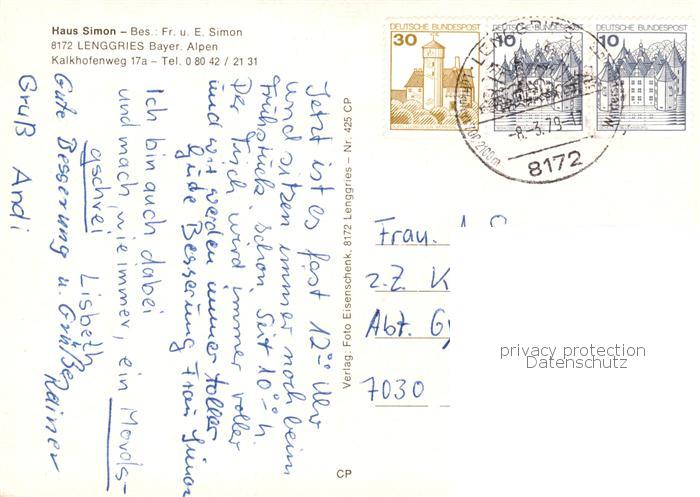 Haus Simon – Bes.: Fr. u. E. Simon
8172 LENGGRIES Bayer. Alpen
Kalkhofenweg 17a – Tel. 0 80 42 / 21 31
Jetzt ist es fast 12°° Uhr
und sitzen immer noch beim
Frühstück schon seit 10°° h.
Der Tisch wird immer voller
und wir werden immer toller
gute Besserung Frau
Ich bin auch dabei
und mach, wie immer, ein Mords-
gschrei
Lisbeth
Gute Besserung u. Grüße
Rainer
Gruß Andi
Verlag: Foto Eisenschenk, 8172 Lenggries – Nr. 425 CP
CP
DEUTSCHE BUNDESPOST
30
DEUTSCHE BUNDESPOST
10
DEUTSCHE BUNDESPOST
10
LENGGRIES
-8.-3.79-
8172
Frau
z.Z. K
Abt. Gy
7030
privacy protection
Datenschutz